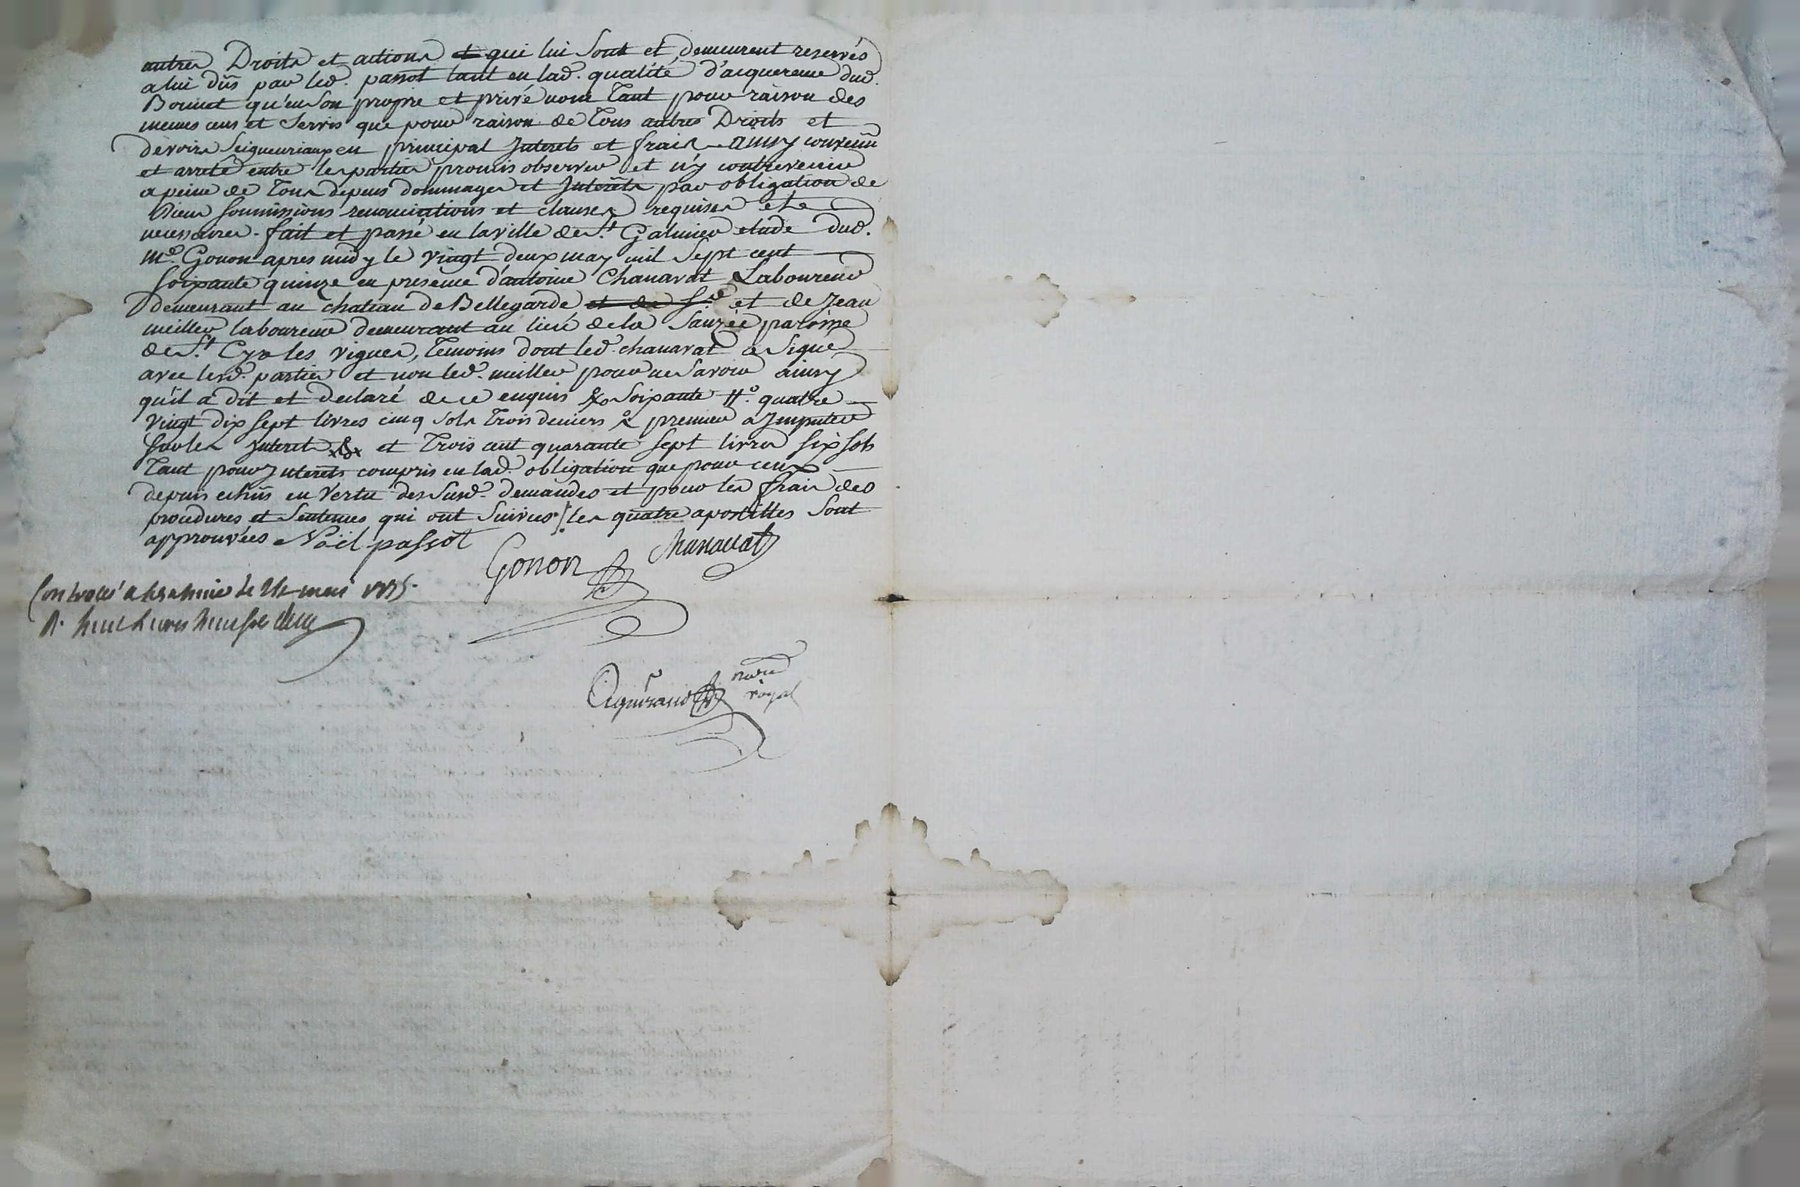 autres Droits et actions et qui lui sont et demeurent reservés
a lui dûs par led. passot tant en lad. qualité d'acquereur dud.
Bonnet qu'en son propre et privé nom tant pour raison des
memes cens et servis que pour raison de tous autres Droits et
devoirs seigneuriaux en principal Interets et frais ainsy convenû
et arreté entre les parties promis observer et n'y contrevenir
a peine de tous depens dommages et Interêts par obligation de
biens soumissions renonciations et clauses requises et
necessaires. fait et passé en la ville de St. Galmier etude dud.
Me. Gonon apres midy le vingt deux may mil sept cent
soixante quinze en presence d'antoine Chanavat Laboureur
demeurant au chateau de Bellegarde et de Jean
meiller laboureur demeurant au lieu de la Sauzée paroisse
de St. Cyr les vignes, temoins dont led. chanavat a signé
avec lesd. parties et non led. meiller pour ne savoir ainsy
qu'il a dit et declaré de ce enquis soixante quatre
vingt dix sept livres cinq sols trois deniers premier a Imputer
sur les Interets et trois cent quarante sept livres six sols
tant pour Interets compris en lad. obligation que pour ceux
depuis echûs en vertu des susd. demandes et pour les frais des
procedures et sentences qui ont suivies les quatre apostilles sont
approuvées Noël passot
Gonon Chanavat
Controllé a St galmier le 24 mai 1775.
R. huit livres
royal